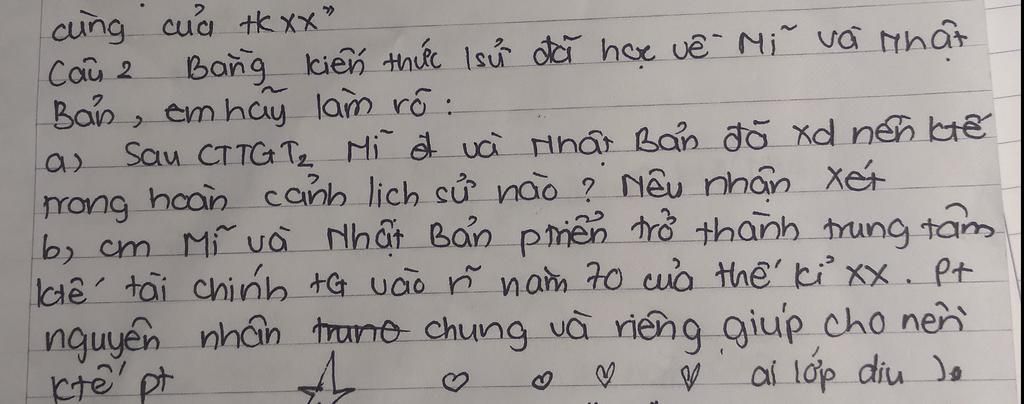 cùng của tk xx"
Câu 2 Bằng kiến thức lsử đã học về Mĩ và Nhật
Bản, em hãy làm rõ :
a) Sau CTTGT2 Mĩ và Nhật Bản đã xd nền ktế
trong hoàn cảnh lịch sử nào ? Nêu nhận xét
b, cm Mĩ và Nhật Bản ptriển trở thành trung tâm
ktế tài chính tG vào n~ năm 70 của thế kỉ xx. pt
nguyên nhân chung và riêng giúp cho nền
ktế pt ai lớp diu